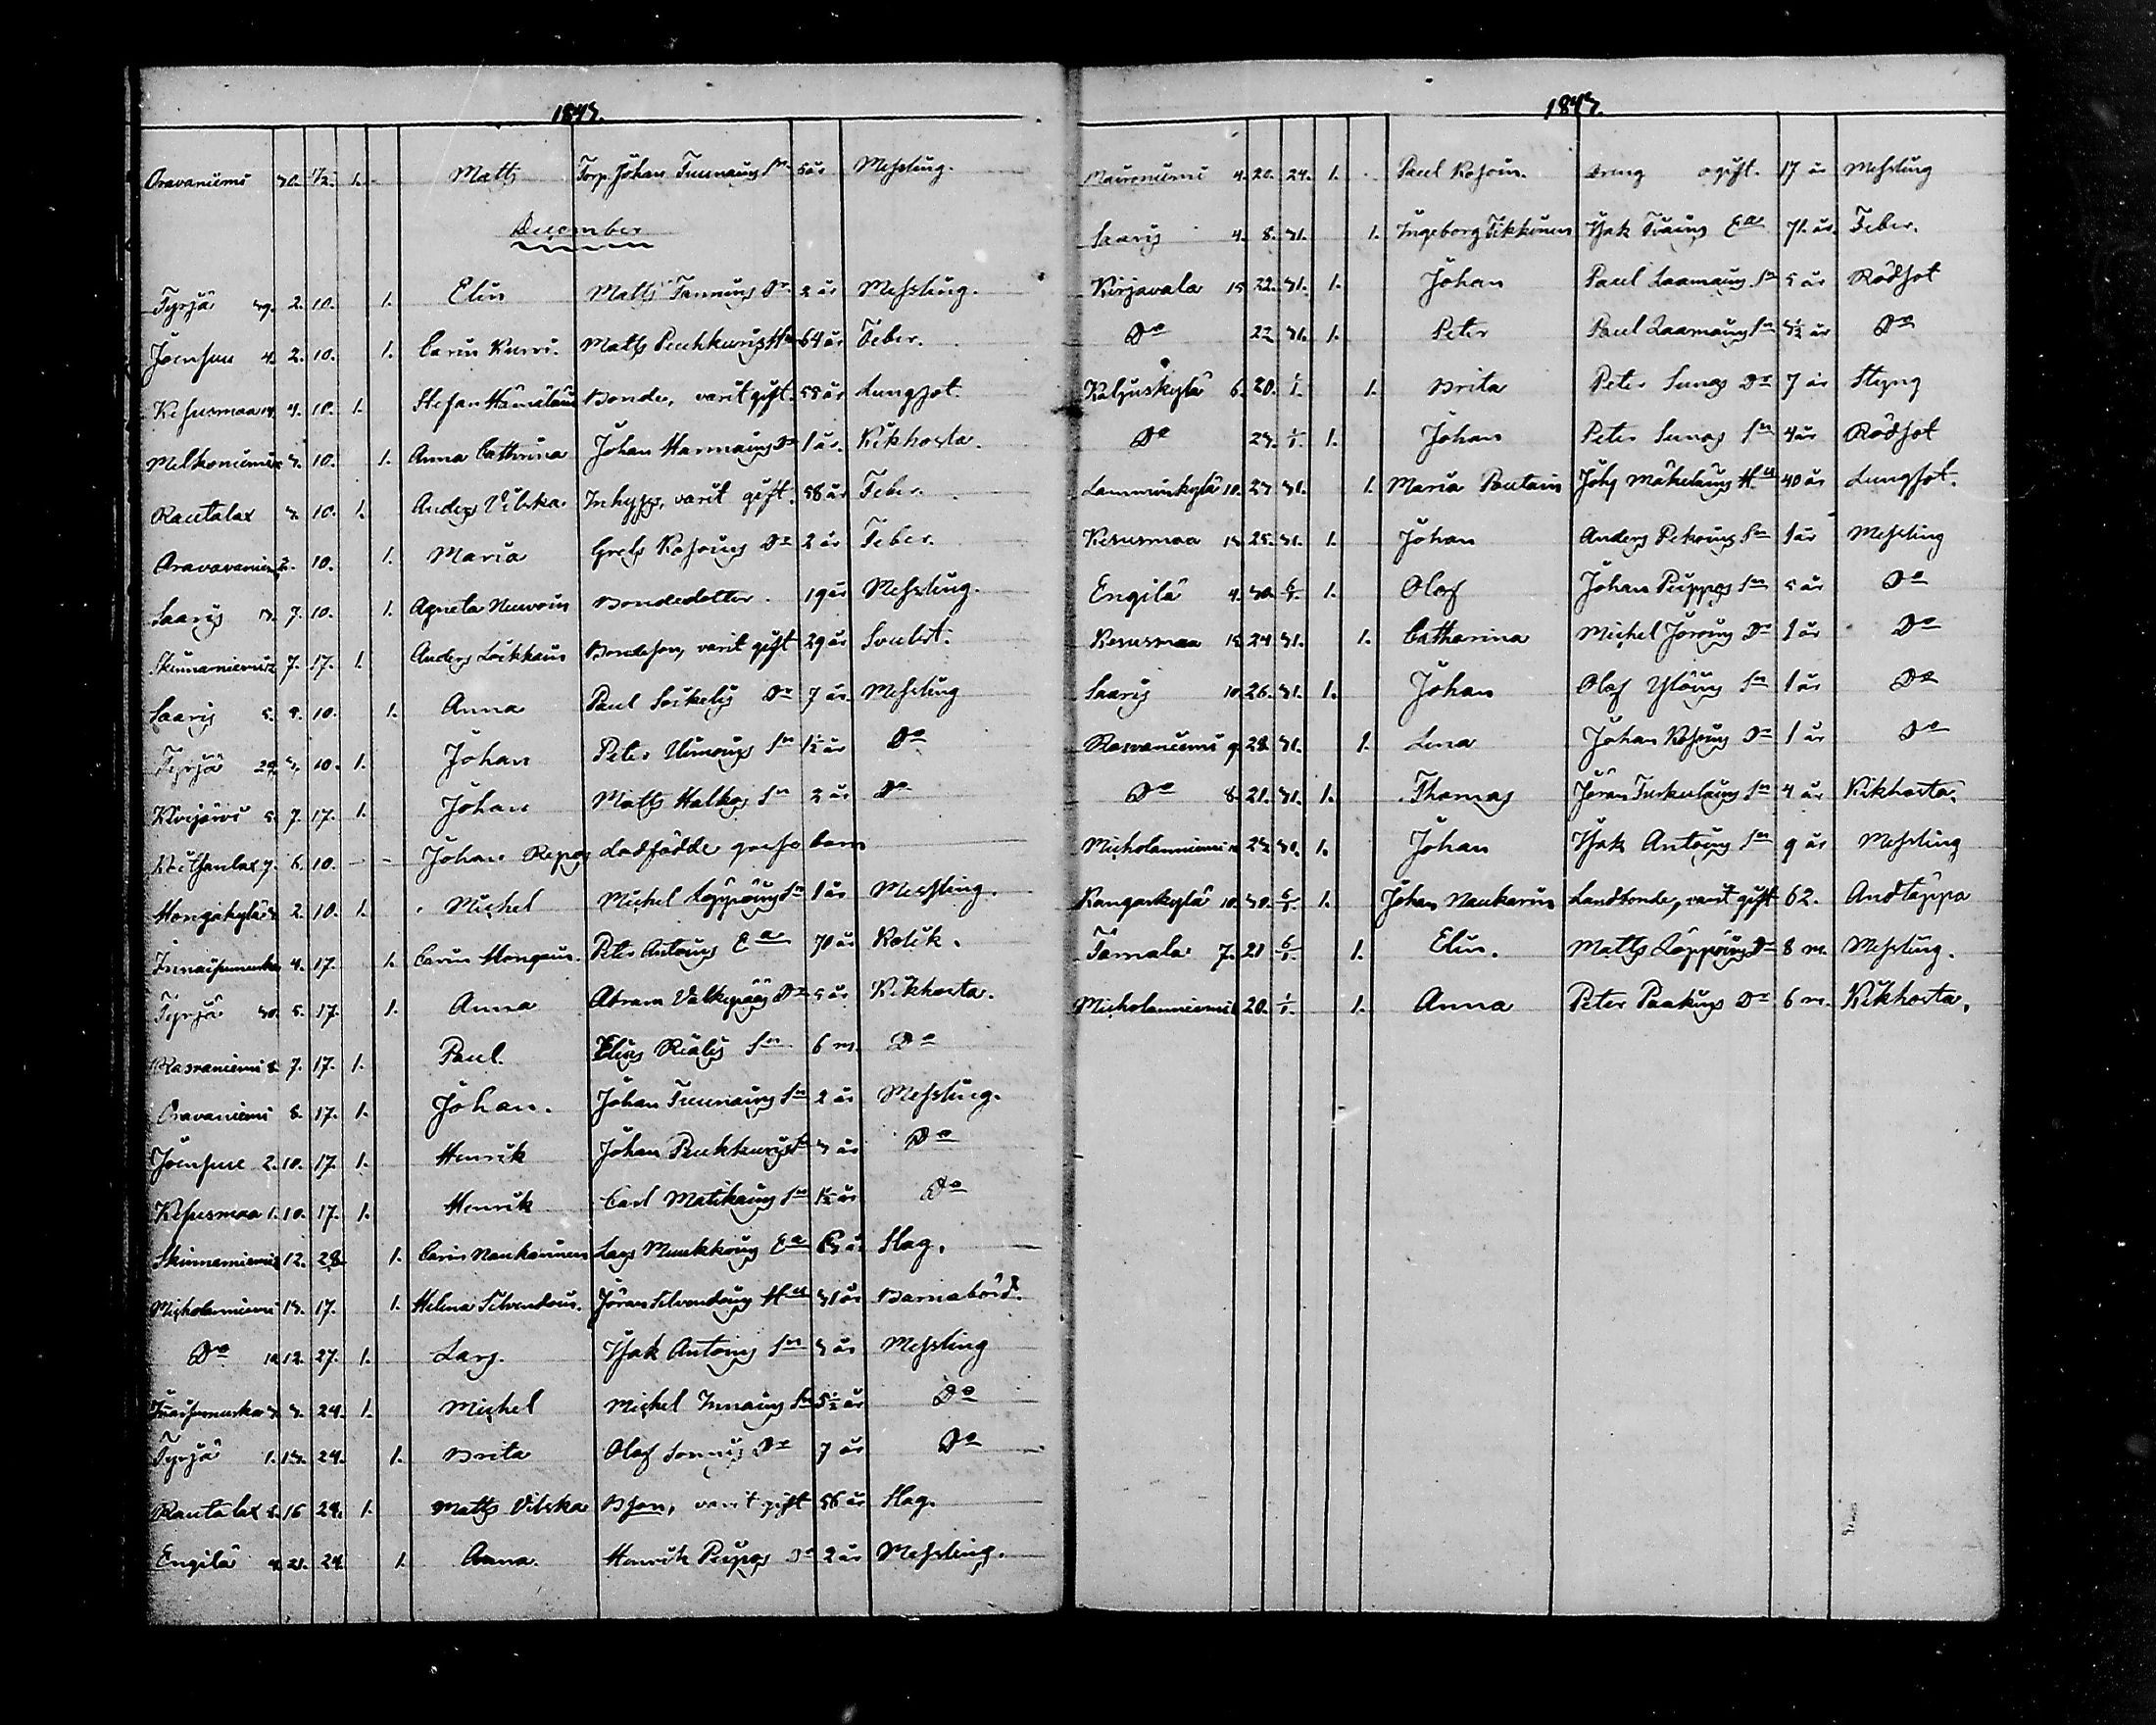 1843.
Oravaniemi 30. 1/12. 1. Matts Torp. Johan Tuunains Sn 5 år Messling.
December
Tyrjä 39. 2. 10. 1. Elin Matts Dr. 2 år Messling.
Joensuu 4. 2. 10. 1. Carin Kurvi. Matts Hu 64 år Feber.
Kesusmaa 4. 10. 1. Stefan Hämäläin Bonde, varit gift. 55 år Lungsot.
3. 10. 1. Anna Cathrina Johan Harmains Dr 1 år. Kikhosta.
Rautalax 3. 10. 1. Anders Vilska Inhyses, varit gift. 58 år Feber.
2. 10. 1. Maria Grels Kosoins Dr 2 år Feber.
Saaris 7. 10. 1. Agneta Neuvoin Bondedotter. 19 år Messling.
Skinnarniemi 7. 17. 1. Anders Loikkain Bondeson, varit gift 29 år
Saaris 5. 9. 10. 1. Anna Paul Soikelis Dr 7 år Messling
Tyrjä 29. 3. 10. 1. Johan Peter Sn 1½ år Do
Kivijärvi 5. 7. 17. 1. Johan Matts Halkos Sn 2 år Do
7. 6. 10. - - Johan Repos dödfödde gosse barn
2. 10. 1. Michel Michel Löppöins Sn 1 år Messling.
4. 17. 1. Carin Hongain. Peter Antoins Ea 70 år Kolik.
Tyrjä 30. 5. 17. 1. Anna Abram Valkepääs Dr 5 år Kikhosta.
Rasvaniemi 8. 7. 17. 1. Paul. Elias Rialis Sn 6 m. Do
Oravaniemi 8. 17. 1. Johan. Johan Tuunains Sn 2 år Messling.
Joensuu 2. 10. 17. 1. Henrik Johan Sn 3 år Do
Kesusmaa 1. 10. 17. 1. Henrik Carl Matikains Sn 1½ år Do
Skinnarniemi 12. 28. 1. Carin Naukarinen Lars Munkkoins Ea år Slag.
Micholanniemi 13. 17. 1. Helena Silvendoin. Jöran Silvendoins Hu 31 år Barnabörd.
Do 12. 27. 1. Lars. Isak Antoins Sn 3 år Messling
3. 24. 1. Michel Michel Innains Sn 5½ år Do
Tyrjä 1. 13. 24. 1. Brita Olof Sornis Dr 7 år Do
Rautalax 16 24. 1. Matts Vilska Bson, varit gift 56 år Slag.
Engilä 4. 21. 24 1. Anna. Henrik Puipos Dr 2 år Messling.
1843.
4. 20. 24. 1. Paul Kosoin. Dreng ogift. 17 år Messling
Saaris 4. 8. 31. 1. Ingeborg Tikkinen Isak Ea 71. år. Feber.
Kirjavala 15 22. 31. 1. Johan Paul Laamains Sn 5 år Rödsot
Do 22 31. 1. Peter Paul Laamains Sn 3½ år Do
Kaljuskylä 6. 20. 1/1. 1. Brita Peter Sunos Dr 7 år Styng
Do 23. 1/1. 1. Johan Peter Sunos Sn 4 år Rödsot
Lamminkylä 10. 23 31. 1. Maria Pautain Johs Mäkeläins Hu 40 år Lungsot.
Kesusmaa 13 25. 31. 1. Johan Anders Pekoins Sn 1 år Messling
Engilä 4. 30. 6/1. 1. Olof Johan Puippos Sn 5 år Do
Kesusmaa 15 24 31. 1. Catharina Michel Joroins Dr 1 år Do
Saaris 10. 26. 31. 1. Johan Olof Ylöins Sn 1 år Do
Rasvaniemi 9. 28. 31. 1. Lena Johan Kosoins Dr 1 år Do
Do 8. 21. 31. 1. Thomas Jöran Turkulains Sn 4 år Kikhosta.
Micholanniemi 23 31. 1. Johan Isak Antoins Sn 9 år Messling
Kangaskylä 10. 30. 6/1. 1. Johan Naukarin Landbonde, varit gift 62. Andtäppa
Tarnala 7. 21 6/1. 1. Elin. Matts Löppöins Dr 8 m. Messling.
Micholanniemi 20. 1/1. 1. Anna Peter Paakins Dr 6 m. Kikhosta.